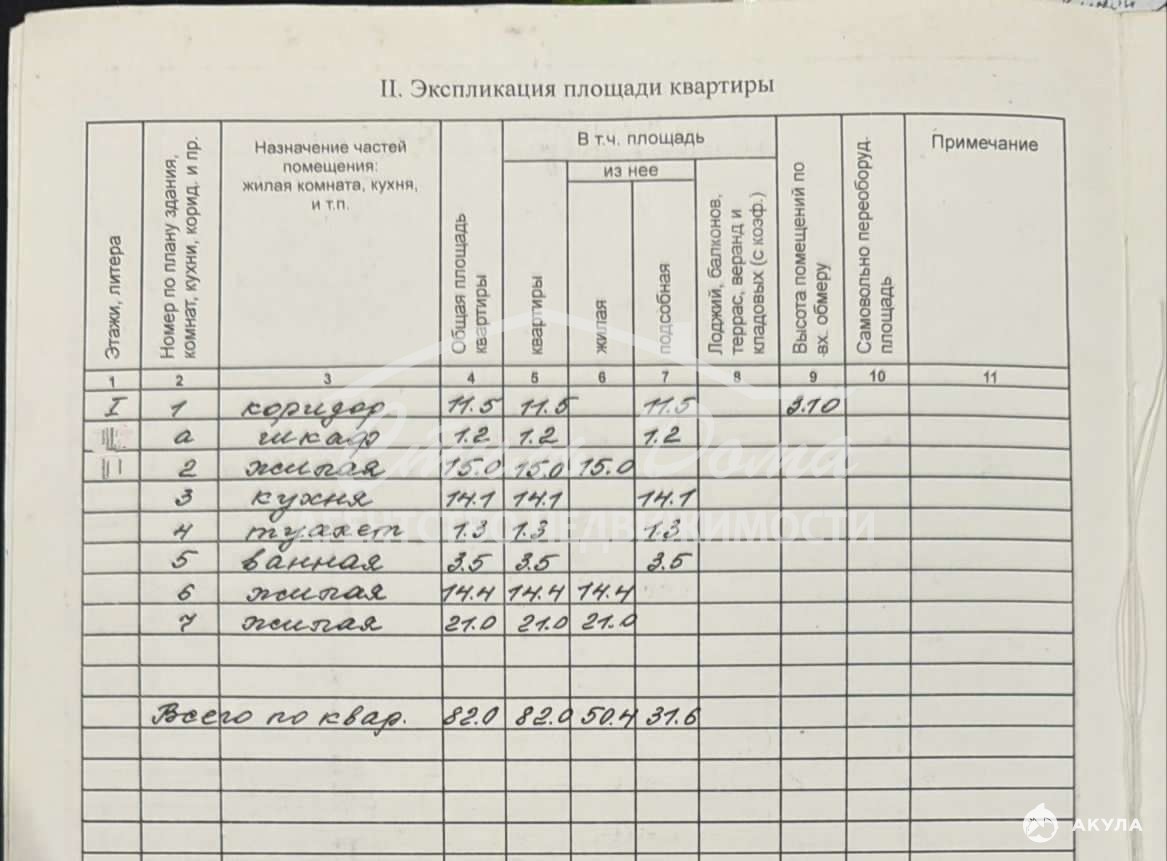 II. Экспликация площади квартиры
Этажи, литера
Номер по плану здания, комнат, кухни, корид. и пр.
Назначение частей помещения: жилая комната, кухня, и т.п.
Общая площадь квартиры
В т.ч. площадь
квартиры
из нее
жилая
подсобная
Лоджий, балконов, террас, веранд и кладовых (с коэф.)
Высота помещений по вх. обмеру
Самовольно переоборуд. площадь
Примечание
1 2 3 4 5 6 7 8 9 10 11
I 1 коридор 11.5 11.5 11.5 3.10
а шкаф 1.2 1.2 1.2
2 жилая 15.0 15.0 15.0
3 кухня 14.1 14.1 14.1
4 туалет 1.3 1.3 1.3
5 ванная 3.5 3.5 3.5
6 жилая 14.4 14.4 14.4
7 жилая 21.0 21.0 21.0
Всего по квар. 82.0 82.0 50.4 31.6
Дома
АГЕНТСТВО НЕДВИЖИМОСТИ
АКУЛА